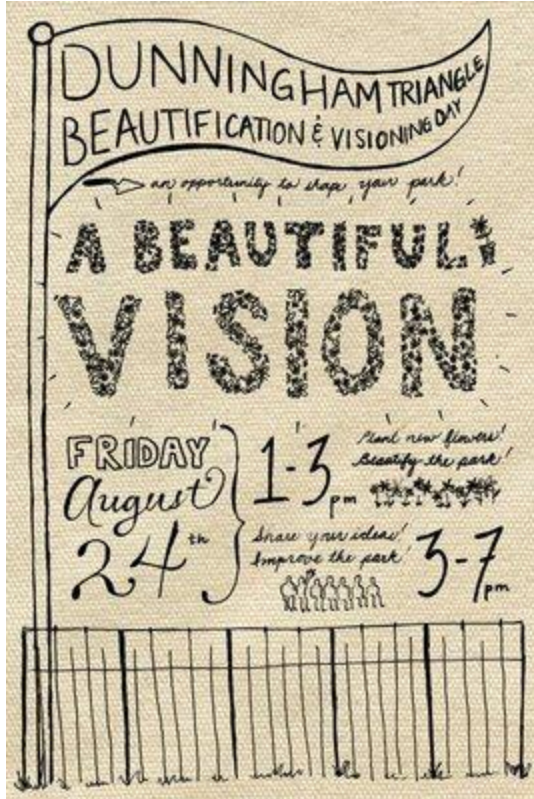 DUNNINGHAM TRIANGLE
BEAUTIFICATION & VISIONING DAY
an opportunity to shape your park!
A BEAUTIFUL
VISION
FRIDAY
August
24th
1-3 pm
Plant new flowers!
Beautify the park!
Share your ideas!
Improve the park!
3-7 pm